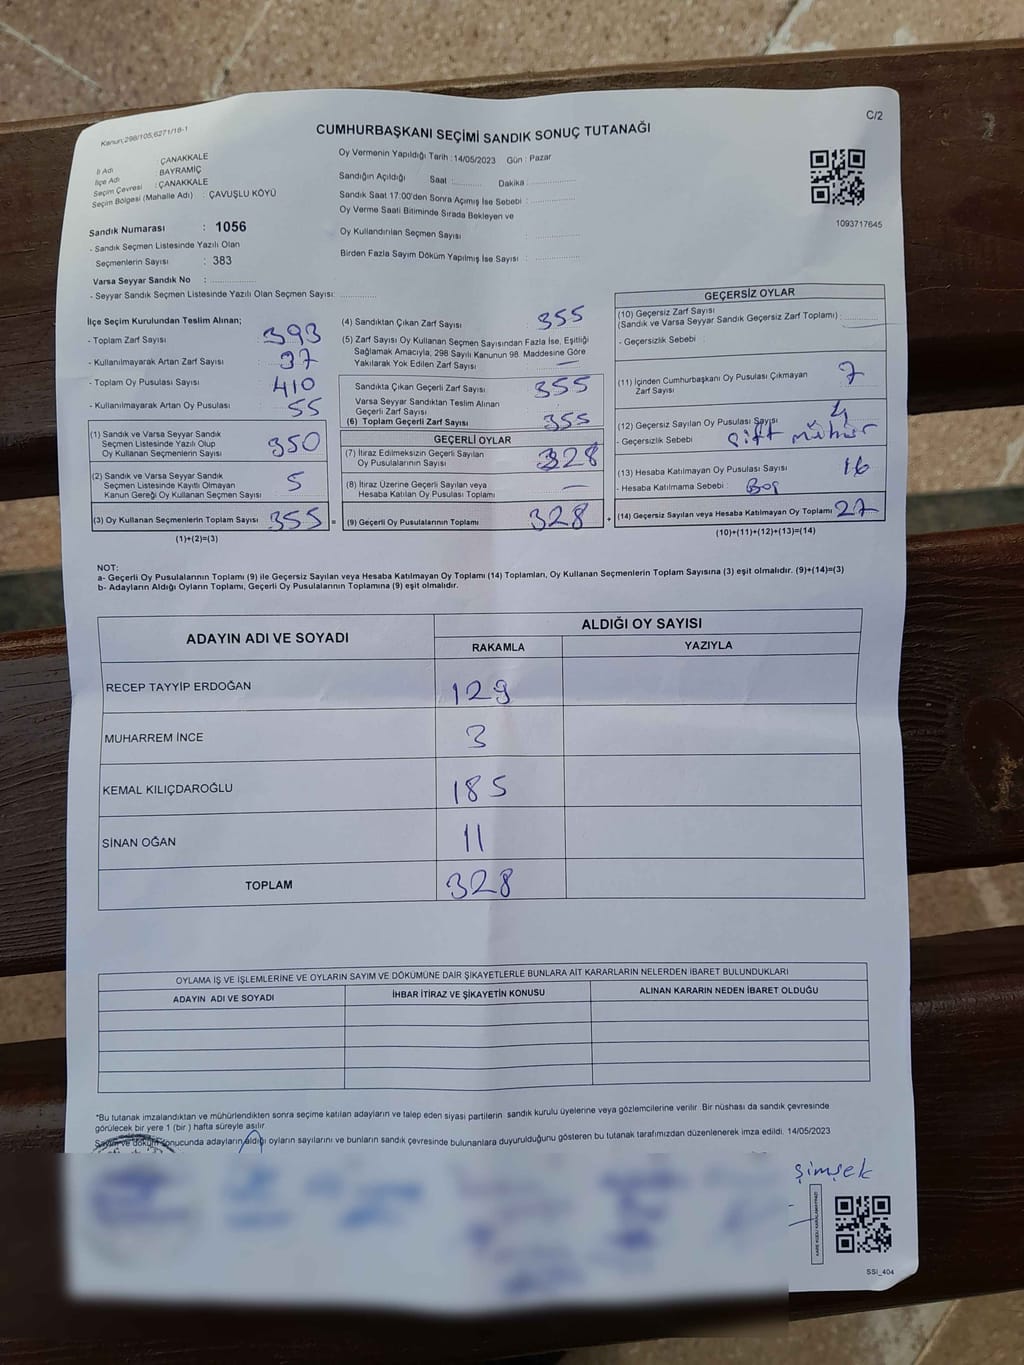 Kanun:298/105,6271/18-1
C/2
CUMHURBAŞKANI SEÇİMİ SANDIK SONUÇ TUTANAĞI
İl Adı : ÇANAKKALE
İlçe Adı : BAYRAMİÇ
Seçim Çevresi : ÇANAKKALE
Seçim Bölgesi (Mahalle Adı) : ÇAVUŞLU KÖYÜ
Oy Vermenin Yapıldığı Tarih : 14/05/2023 Gün : Pazar
Sandığın Açıldığı Saat :........... Dakika :................
Sandık Saat 17:00'den Sonra Açımış İse Sebebi :
Oy Verme Saati Bitiminde Sırada Bekleyen ve
Oy Kullandırılan Seçmen Sayısı
Birden Fazla Sayım Döküm Yapılmış İse Sayısı :
1093717645
Sandık Numarası : 1056
- Sandık Seçmen Listesinde Yazılı Olan
Seçmenlerin Sayısı : 383
Varsa Seyyar Sandık No :
- Seyyar Sandık Seçmen Listesinde Yazılı Olan Seçmen Sayısı:
İlçe Seçim Kurulundan Teslim Alınan;
- Toplam Zarf Sayısı 393
- Kullanılmayarak Artan Zarf Sayısı 37
- Toplam Oy Pusulası Sayısı 410
- Kullanılmayarak Artan Oy Pusulası 55
(1) Sandık ve Varsa Seyyar Sandık
Seçmen Listesinde Yazılı Olup
Oy Kullanan Seçmenlerin Sayısı 350
(2) Sandık ve Varsa Seyyar Sandık
Seçmen Listesinde Kayıtlı Olmayan
Kanun Gereği Oy Kullanan Seçmen Sayısı 5
(3) Oy Kullanan Seçmenlerin Toplam Sayısı 355 =
(1)+(2)=(3)
(4) Sandıktan Çıkan Zarf Sayısı 355
(5) Zarf Sayısı Oy Kullanan Seçmen Sayısından Fazla İse, Eşitliği
Sağlamak Amacıyla, 298 Sayılı Kanunun 98. Maddesine Göre
Yakılarak Yok Edilen Zarf Sayısı —
Sandıkta Çıkan Geçerli Zarf Sayısı 355
Varsa Seyyar Sandıktan Teslim Alınan
Geçerli Zarf Sayısı
(6) Toplam Geçerli Zarf Sayısı 355
GEÇERLİ OYLAR
(7) İtiraz Edilmeksizin Geçerli Sayılan
Oy Pusulalarının Sayısı 328
(8) İtiraz Üzerine Geçerli Sayılan veya
Hesaba Katılan Oy Pusulası Toplamı —
(9) Geçerli Oy Pusulalarının Toplamı 328 +
GEÇERSİZ OYLAR
(10) Geçersiz Zarf Sayısı
(Sandık ve Varsa Seyyar Sandık Geçersiz Zarf Toplamı) :
- Geçersizlik Sebebi :
(11) İçinden Cumhurbaşkanı Oy Pusulası Çıkmayan
Zarf Sayısı 7
(12) Geçersiz Sayılan Oy Pusulası Sayısı 4
- Geçersizlik Sebebi Çift mühür
(13) Hesaba Katılmayan Oy Pusulası Sayısı 16
- Hesaba Katılmama Sebebi : Boş
(14) Geçersiz Sayılan veya Hesaba Katılmayan Oy Toplamı 27
(10)+(11)+(12)+(13)=(14)
NOT:
a- Geçerli Oy Pusulalarının Toplamı (9) ile Geçersiz Sayılan veya Hesaba Katılmayan Oy Toplamı (14) Toplamları, Oy Kullanan Seçmenlerin Toplam Sayısına (3) eşit olmalıdır. (9)+(14)=(3)
b- Adayların Aldığı Oyların Toplamı, Geçerli Oy Pusulalarının Toplamına (9) eşit olmalıdır.
ADAYIN ADI VE SOYADI
ALDIĞI OY SAYISI
RAKAMLA YAZIYLA
RECEP TAYYİP ERDOĞAN 129
MUHARREM İNCE 3
KEMAL KILIÇDAROĞLU 185
SİNAN OĞAN 11
TOPLAM 328
OYLAMA İŞ VE İŞLEMLERİNE VE OYLARIN SAYIM VE DÖKÜMÜNE DAİR ŞİKAYETLERLE BUNLARA AİT KARARLARIN NELERDEN İBARET BULUNDUKLARI
ADAYIN ADI VE SOYADI İHBAR İTİRAZ VE ŞİKAYETİN KONUSU ALINAN KARARIN NEDEN İBARET OLDUĞU
*Bu tutanak imzalandıktan ve mühürlendikten sonra seçime katılan adayların ve talep eden siyasi partilerin sandık kurulu üyelerine veya gözlemcilerine verilir. Bir nüshası da sandık çevresinde
görülecek bir yere 1 (bir ) hafta süreyle asılır.
Sayım ve döküm sonucunda adayların aldığı oyların sayılarını ve bunların sandık çevresinde bulunanlara duyurulduğunu gösteren bu tutanak tarafımızdan düzenlenerek imza edildi. 14/05/2023
şimşek
SSİ_404